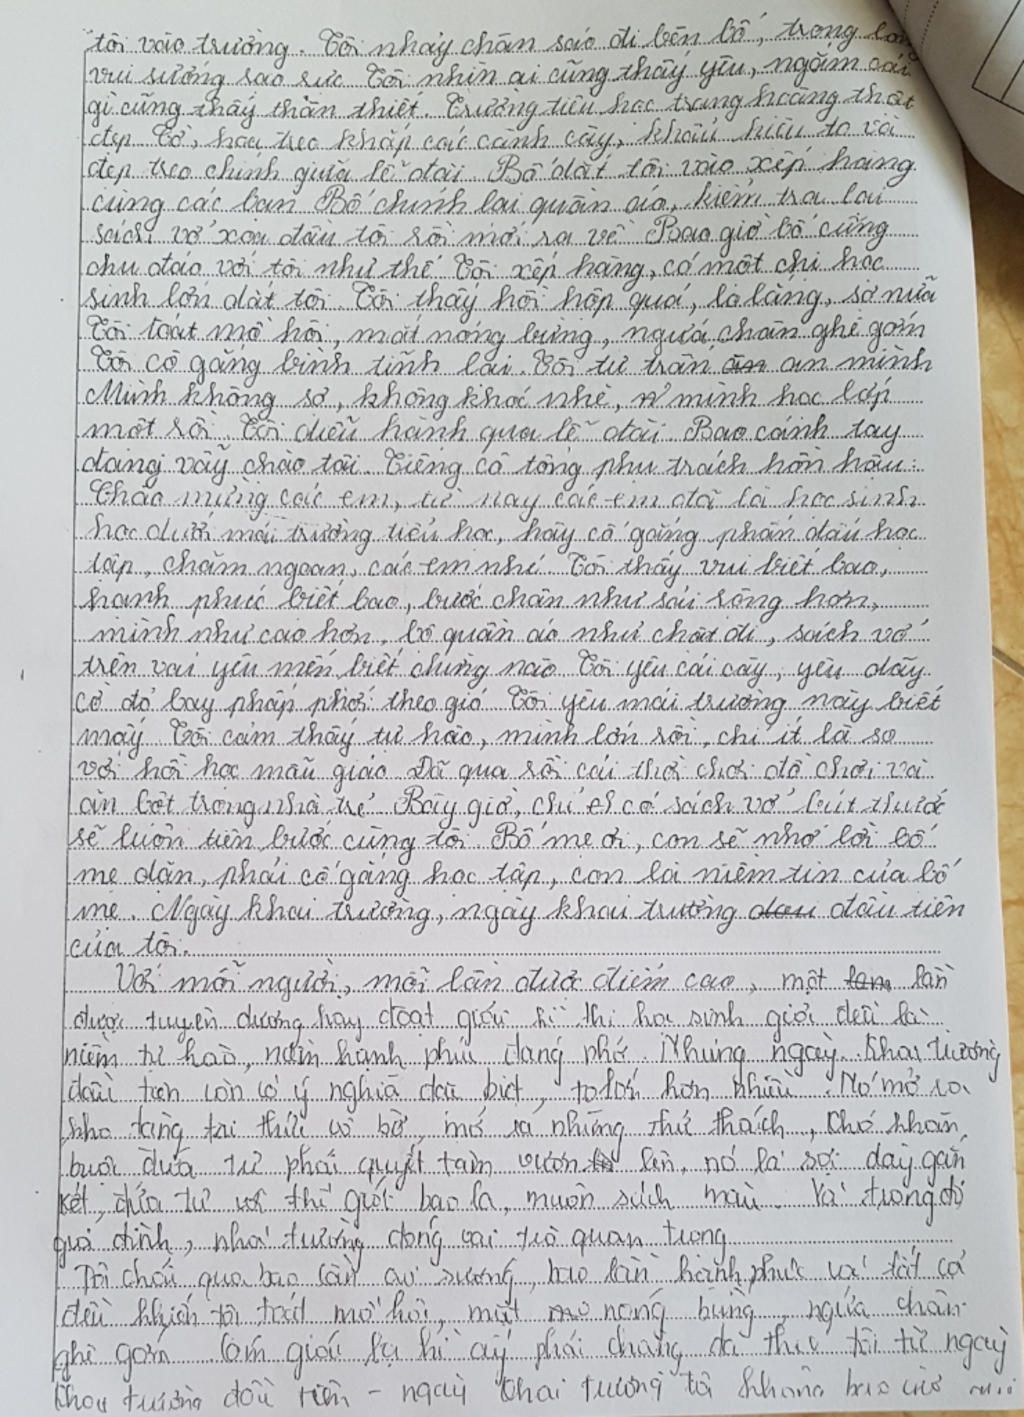 tôi vào trường. Tôi nhảy chân sáo đi bên bố, trong lòng
vui sướng sao sực Tôi nhìn ai cũng thấy yêu, ngắm cái
gì cũng thấy thân thiết. Trường tiểu học trang hoàng thật
đẹp Cờ, hoa treo khắp các cành cây, khẩu hiệu to và
đẹp treo chính giữa lễ đài Bố dắt tôi vào xếp hàng
cùng các bạn Bố chỉnh lại quần áo, kiểm tra lại
sách vở xoa đầu tôi rồi mới ra về Bao giờ bố cũng
chu đáo với tôi như thế Tôi xếp hàng, có một chị học
sinh lớn dắt tôi. Tôi thấy hồi hộp quá, lo lắng, sợ nữa
Tôi toát mồ hôi, mặt nóng bừng, ngứa chân ghê gớm
Tôi cố gắng bình tĩnh lại. Tôi tự trấn an mình
Mình không sợ, không khóc nhè, vì mình học lớp
một rồi. Tôi diễu hành qua lễ đài. Bao cánh tay
đang vẫy chào tôi. Tiếng cô tổng phụ trách hồn hậu:
Chào mừng các em, từ nay các em đã là học sinh
học dưới mái trường tiểu học, hãy cố gắng phấn đấu học
tập, chăm ngoan, các em nhé. Tôi thấy vui biết bao,
hạnh phúc biết bao, bước chân như sải rộng hơn,
mình như cao hơn, bộ quần áo như chật đi, sách vở
trên vai yêu mến biết chừng nào Tôi yêu cái cây, yêu dãy
cờ đỏ bay phấp phới theo gió Tôi yêu mái trường này biết
mấy Tôi cảm thấy tự hào, mình lớn rồi, chí ít là so
với hồi học mẫu giáo Đã qua rồi cái thời chơi đồ chơi và
ăn bột trong nhà trẻ Bây giờ, chỉ có sách vở bút thước
sẽ luôn tiến bước cùng tôi. Bố mẹ ơi, con sẽ nhớ lời bố
mẹ dặn, phải cố gắng học tập, con là niềm tin của bố
mẹ. Ngày khai trường, ngày khai trường đầu tiên
của tôi.
Với mỗi người, mỗi lần được điểm cao, một lần
được tuyên dương hay đoạt giải kì thi học sinh giỏi đều là
niềm tự hào, niềm hạnh phúc đáng nhớ. Nhưng ngày khai trường
đầu tiên còn có ý nghĩa đặc biệt, to lớn hơn nhiều. Nó mở ra
kho tàng tri thức vô bờ, mở ra những thử thách, khó khăn
buộc đứa trẻ phải quyết tâm vươn lên, nó là sợi dây gắn
kết đứa trẻ với thế giới bao la, muôn sách màu. Và trong đó
gia đình, nhà trường đóng vai trò quan trọng
Tôi trải qua bao lần vui sướng, bao lần hạnh phúc và tất cả
đều khiến tôi toát mồ hôi, mặt nóng bừng, ngứa chân
ghê gớm Cảm giác kì ấy phải chăng đã theo tôi từ ngày
khai trường đầu tiên – ngày khai trường tôi không bao giờ